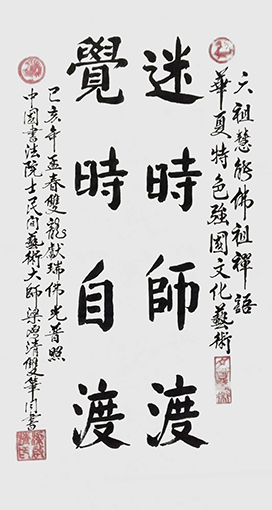 六祖慧能佛祖禪語
華夏特色強國文化藝術
迷時師渡
覺時自渡
己亥年孟春雙龍獻瑞佛光普照
中國書法院士民间藝術大師梁恩清雙筆同書